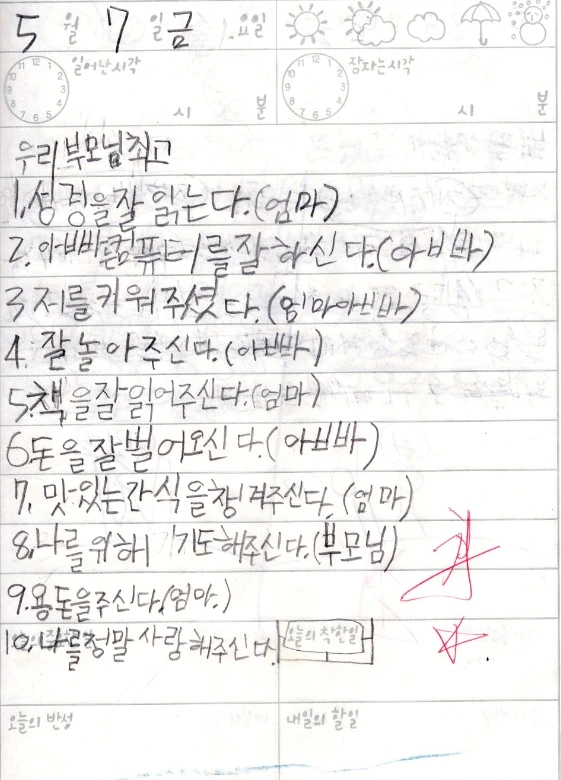 5 월 7 일 금 요일
12 1 2 3 4 5 6 7 8 9 10 11 일어난시각 시 분
12 1 2 3 4 5 6 7 8 9 10 11 잠자는시각 시 분
우리부모님최고
1.성경을잘 읽는다.(엄마)
2.아빠는컴퓨터를잘하신다.(아빠)
3 저를키워주셨다.(엄마아빠)
4.잘놀아주신다.(아빠)
5.책을잘읽어주신다.(엄마)
6.돈을잘벌어오신다.(아빠)
7.맛있는간식을챙겨주신다.(엄마)
8.나를위해 기도해주신다.(부모님)
9.용돈을주신다.(엄마.)
10.나를정말사랑해주신다.
오늘의 착한일
오늘의 반성
내일의 할일